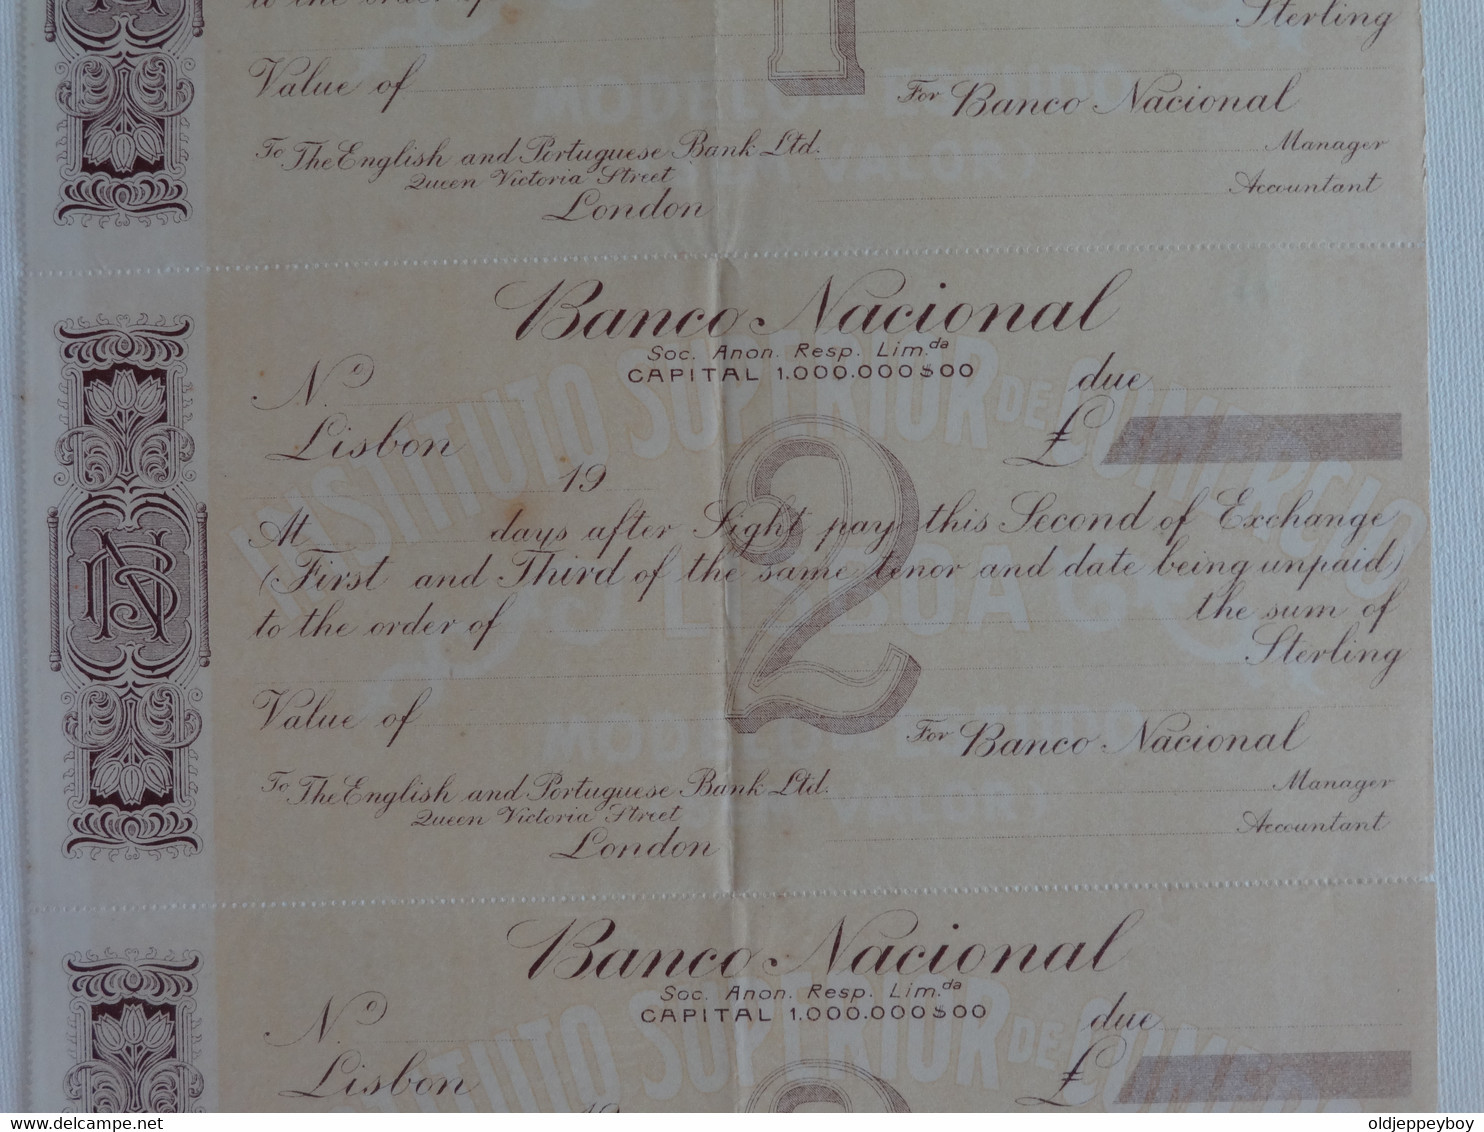 to the order of
Sterling
Value of
For Banco Nacional
To The English and Portuguese Bank Ltd.
Manager
Queen Victoria Street
Accountant
London
1
Banco Nacional
Soc. Anon. Resp. Lim.da
CAPITAL 1.000.000$00
No
due
Lisbon
£
19
2
At days after Sight pay this Second of Exchange
(First and Third of the same tenor and date being unpaid)
to the order of the sum of
Sterling
Value of
For Banco Nacional
To The English and Portuguese Bank Ltd.
Manager
Queen Victoria Street
Accountant
London
INSTITUTO SUPERIOR DE COMERCIO
LISBOA
NB
Banco Nacional
Soc. Anon. Resp. Lim.da
CAPITAL 1.000.000$00
No
due
Lisbon
£
19
oldjeppeyboy